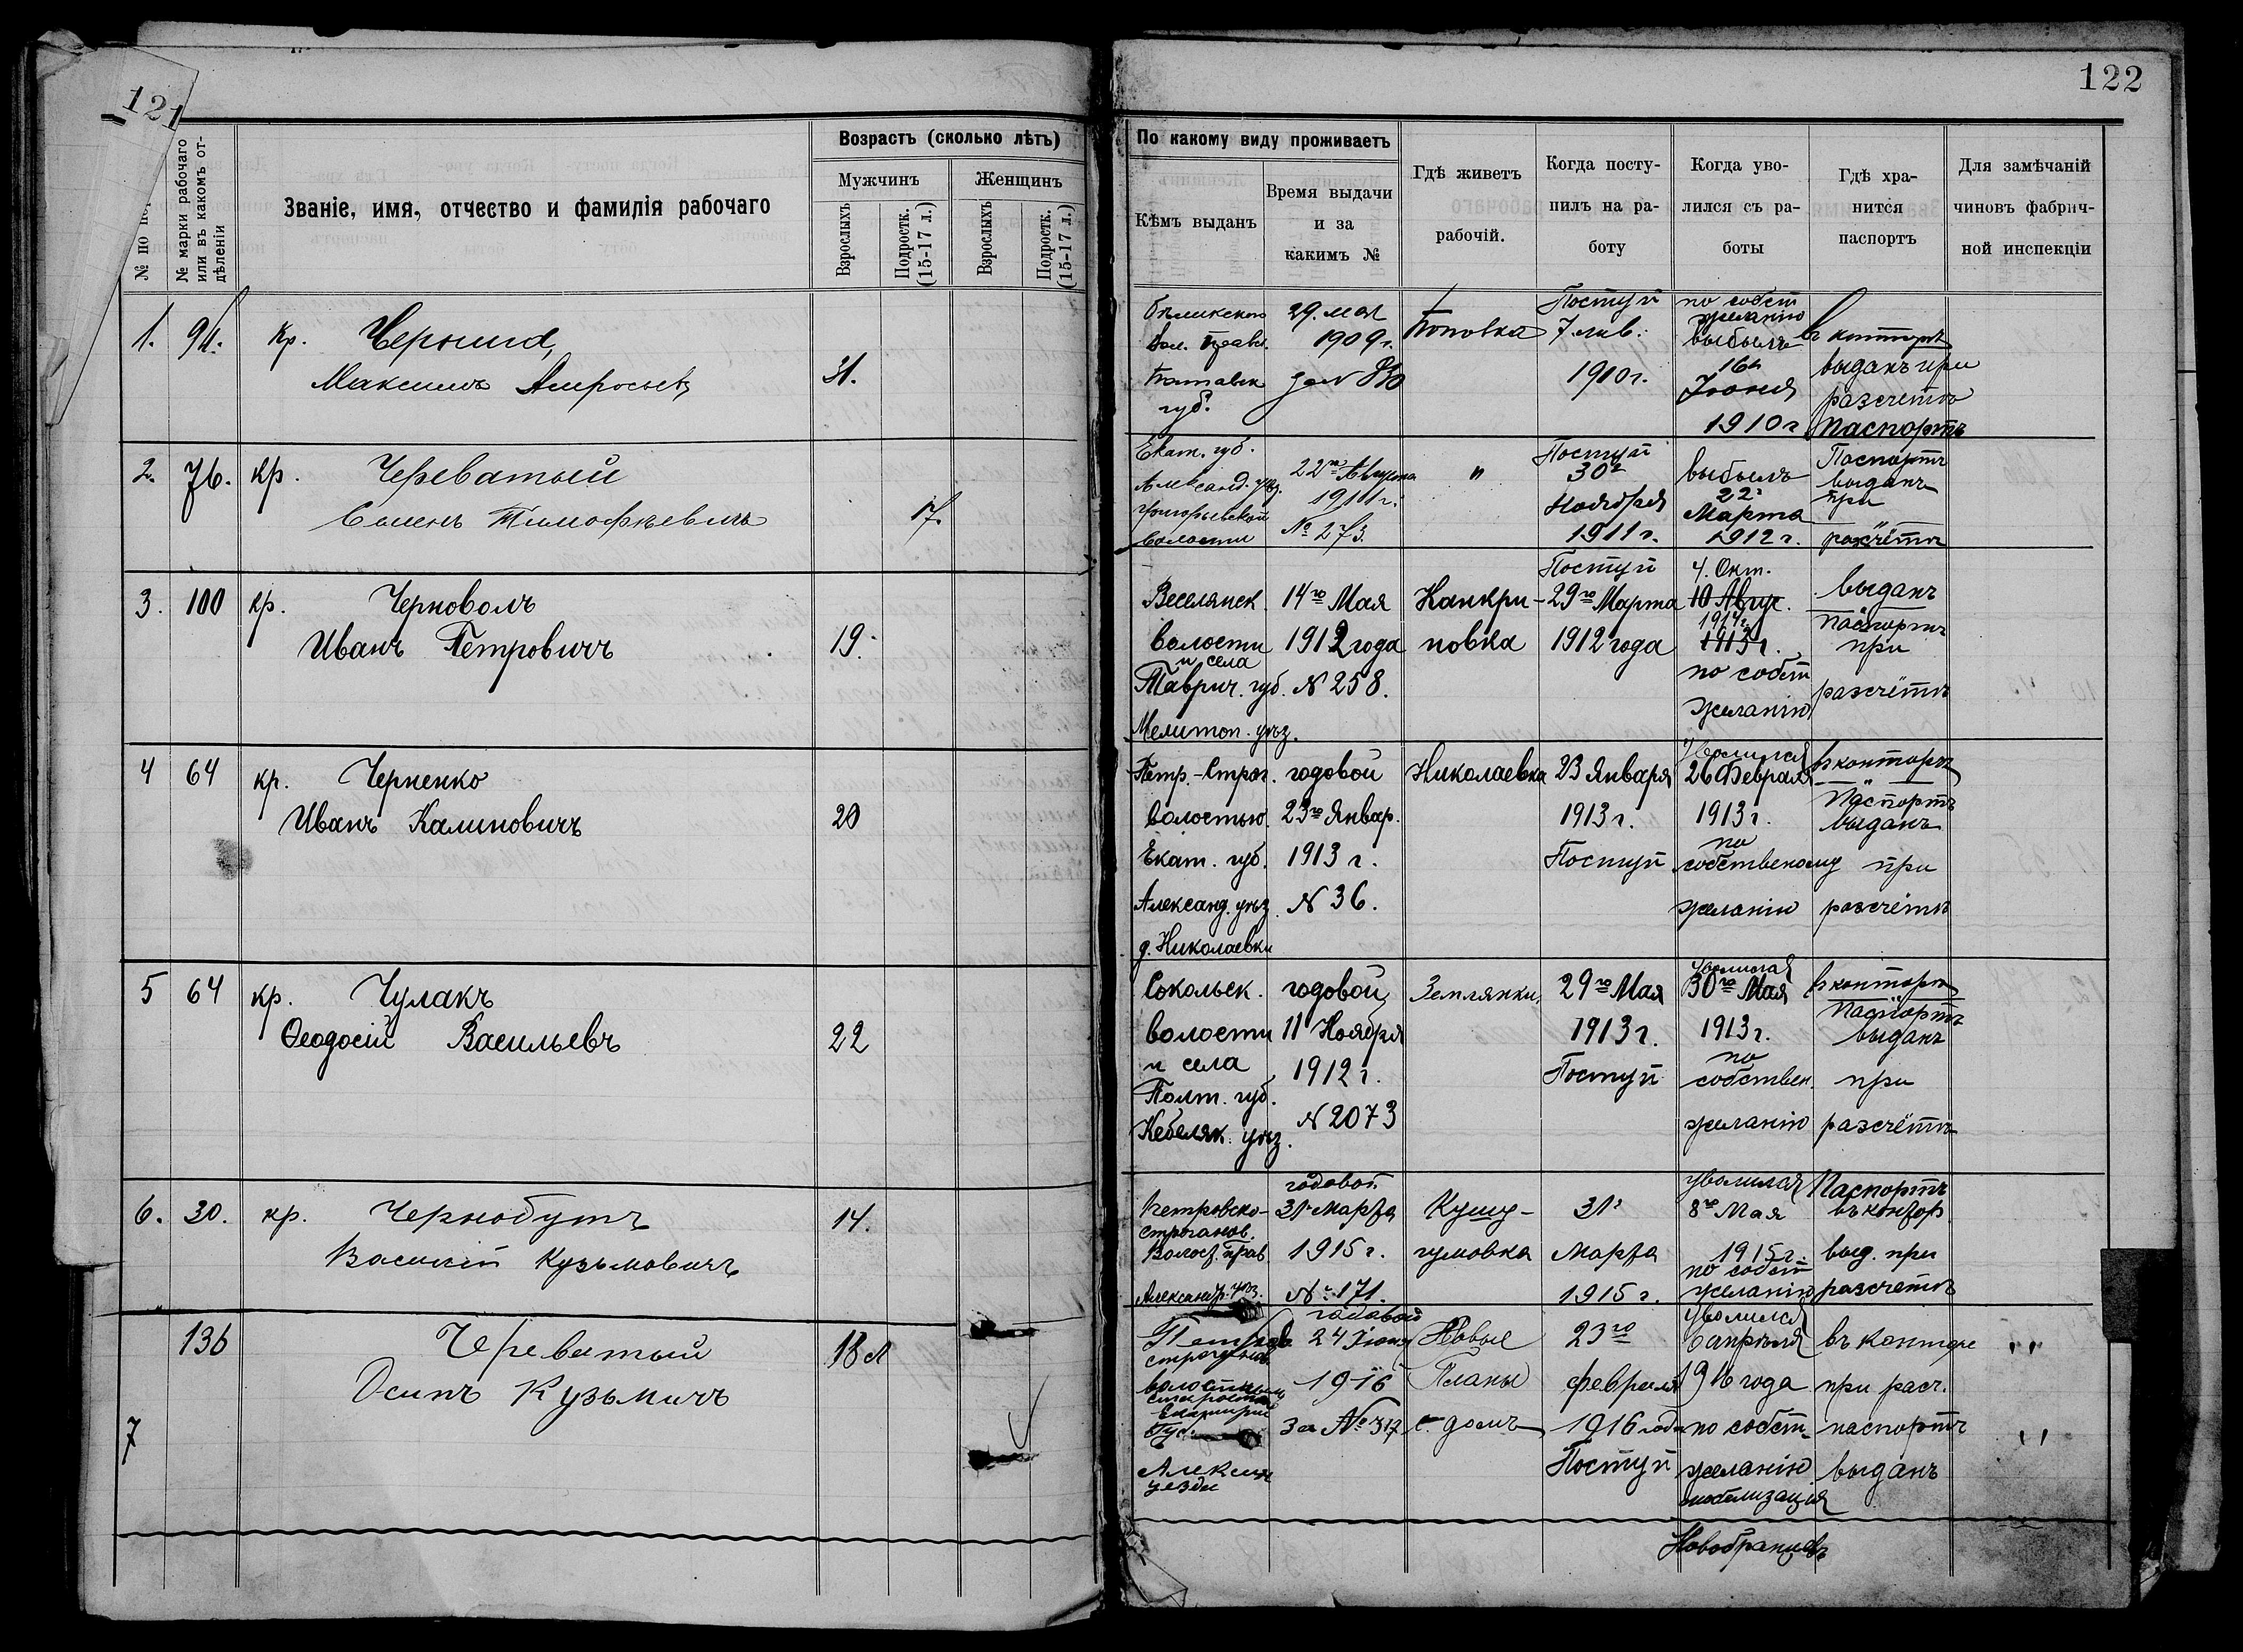 121
№ марки рабочаго или въ какомъ от-дѣленіи
Званіе, имя, отчество и фамилія рабочаго
Возрастъ (сколько лѣтъ)
Мужчинъ
Женщинъ
Взрослыхъ
Подростк. (15-17 л.)
Взрослыхъ
Подростк. (15-17 л.)
1. 91. кр.
Максимъ 31.
2. 76. кр. Череватый
Семенъ Тимофѣевичъ 17.
3. 100 кр. Черноволъ
Иванъ Петровичъ 19.
4 64 кр. Черненко
Иванъ Калиновичъ 20
5 64 кр. Чулакъ
Ѳеодосій Васильевъ 22
6. 30. кр. Чернобутъ
Василій Кузьмовичъ 14.
136 Череватый 18 л
Осипъ Кузьмичъ
7
122
По какому виду проживаетъ
Кѣмъ выданъ
Время выдачи и за какимъ №
Гдѣ живетъ рабочій.
Когда посту-пилъ на ра-боту
Когда уво-лился съ ра-боты
Гдѣ хра-нится паспортъ
Для замѣчаній чиновъ фабрич-ной инспекціи
Вол. правл.
губ.
29. мая
1909 г.
Поповка
Поступ
7 янв.
1910 г.
по собст
желанію
выбылъ
16
Іюня
1910 г
въ конторѣ
выданъ при
разсчетѣ
Паспортъ
Екат. губ.
Александ. уѣз.
волости
22го Августа
1911 г.
№ 273.
"
Поступ
30г
Ноября
1911 г.
выбылъ
22г
Марта
1912 г.
Паспортъ
выданъ
при
разсчётѣ
Веселянск.
волости
и села
Таврич. губ.
Мелитоп. уѣз.
14го Мая
1912 года
N 258.
Канкри-
новка
Поступ
29го Марта
1912 года
4. Окт.
10 Авгус.
1914 г.
1913 г.
по собст
желанію
Выданъ
паспортъ
при
разсчётѣ
Петр.-Строг.
волостью.
Екат. губ.
Александ. уѣз.
д. Николаевки
годовой
23го Январ.
1913 г.
N 36.
Николаевка
23 Января
1913 г.
Поступ
уволился
26 Февраля
1913 г.
по
собственому
желанію
въ конторѣ
Паспортъ
выданъ
при
разсчётѣ
Сокольск.
волости
и села
Полт. губ.
Кебеляк. уѣз.
годовой
11 Ноября
1912 г.
N 2073
Землянки
29го Мая
1913 г.
Поступ
уволился
30го Мая
1913 г.
по
собствен.
желанію
въ конторѣ
Паспортъ
выданъ
при
разсчётѣ
Петровско-
строганов.
Волост. прав
Александр. уѣз.
годовой
31г Марта
1915 г.
№ 171.
Кушу-
гумовка
31г
Марта
1915 г.
уволился
8го Мая
1915 г.
по собст
желанію
Паспортъ
въ контор
выд. при
разсчетѣ
волостнымъ
уезда
годовой
24 Іюня
1916
За № 317
Новые
Планы
с. домъ
23го
февраля
1916 года
Поступ
уволился
6 апрѣля
1916 года
по собст.
желанію
мобелизація
Новобранцевъ
въ конторе
при расч.
паспортъ
выданъ
"
"